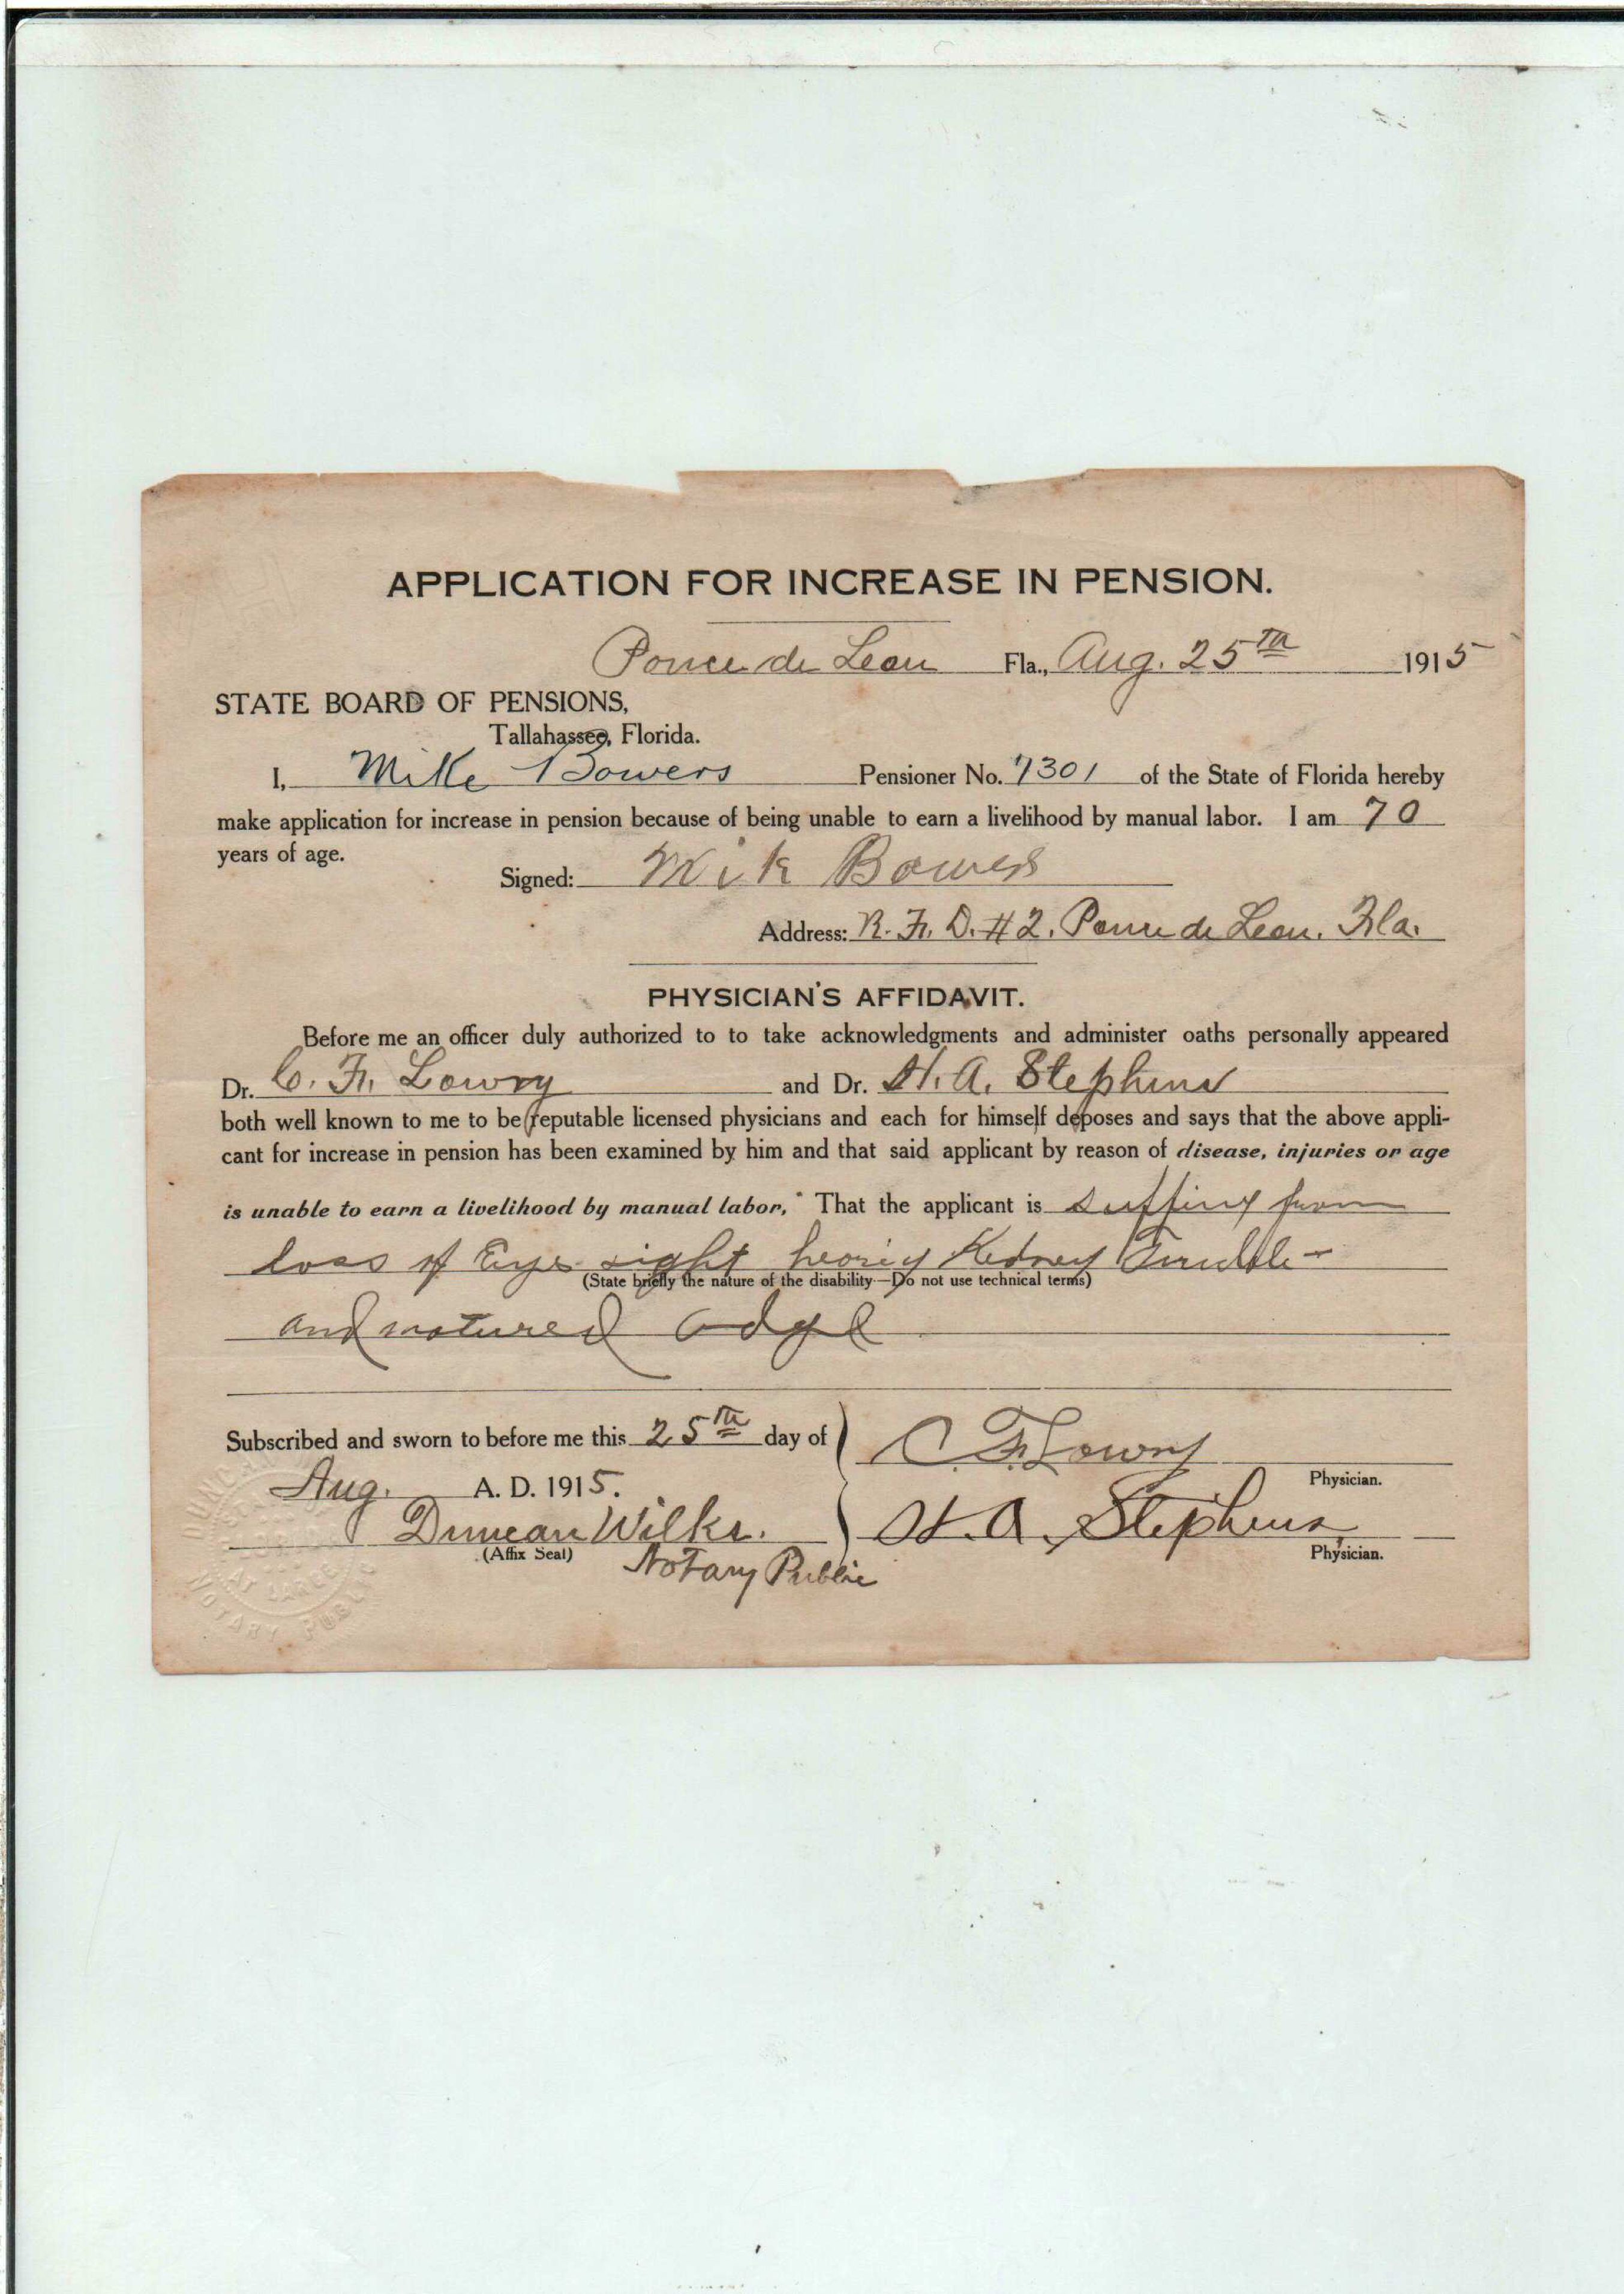 APPLICATION FOR INCREASE IN PENSION.
Ponce de Leon Fla., Aug. 25th 1915
STATE BOARD OF PENSIONS,
Tallahassee, Florida.
I, Mike Bowers Pensioner No. 7301 of the State of Florida hereby
make application for increase in pension because of being unable to earn a livelihood by manual labor. I am 70
years of age.
Signed: Mik Bowers
Address: R. F. D. #2. Ponce de Leon. Fla.
PHYSICIAN'S AFFIDAVIT.
Before me an officer duly authorized to to take acknowledgments and administer oaths personally appeared
Dr. C. F. Lowry and Dr. H. A. Stephens
both well known to me to be reputable licensed physicians and each for himself deposes and says that the above appli-
cant for increase in pension has been examined by him and that said applicant by reason of disease, injuries or age
is unable to earn a livelihood by manual labor, That the applicant is suffing from
loss of Eye sight hearing Kedney
(State briefly the nature of the disability—Do not use technical terms)
and matured adge
Subscribed and sworn to before me this 25th day of
Aug. A. D. 1915.
C. F. Lowry
Physician.
Duncan Wilks. H. A. Stephens
(Affix Seal) Physician.
Notary Public
NOTARY PUBLIC